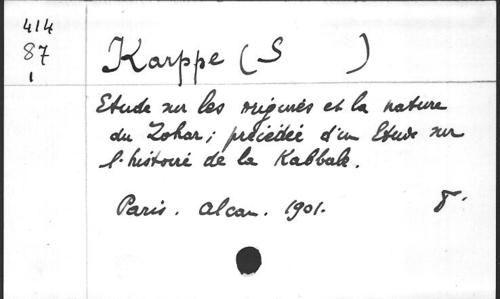 414
87
1
Karppe (S )
Etude sur les origines et la nature
du Zohar; précédée d'un Etude sur
l'histoire de la Kabbale.
Paris. Alcan. 1901. 8.